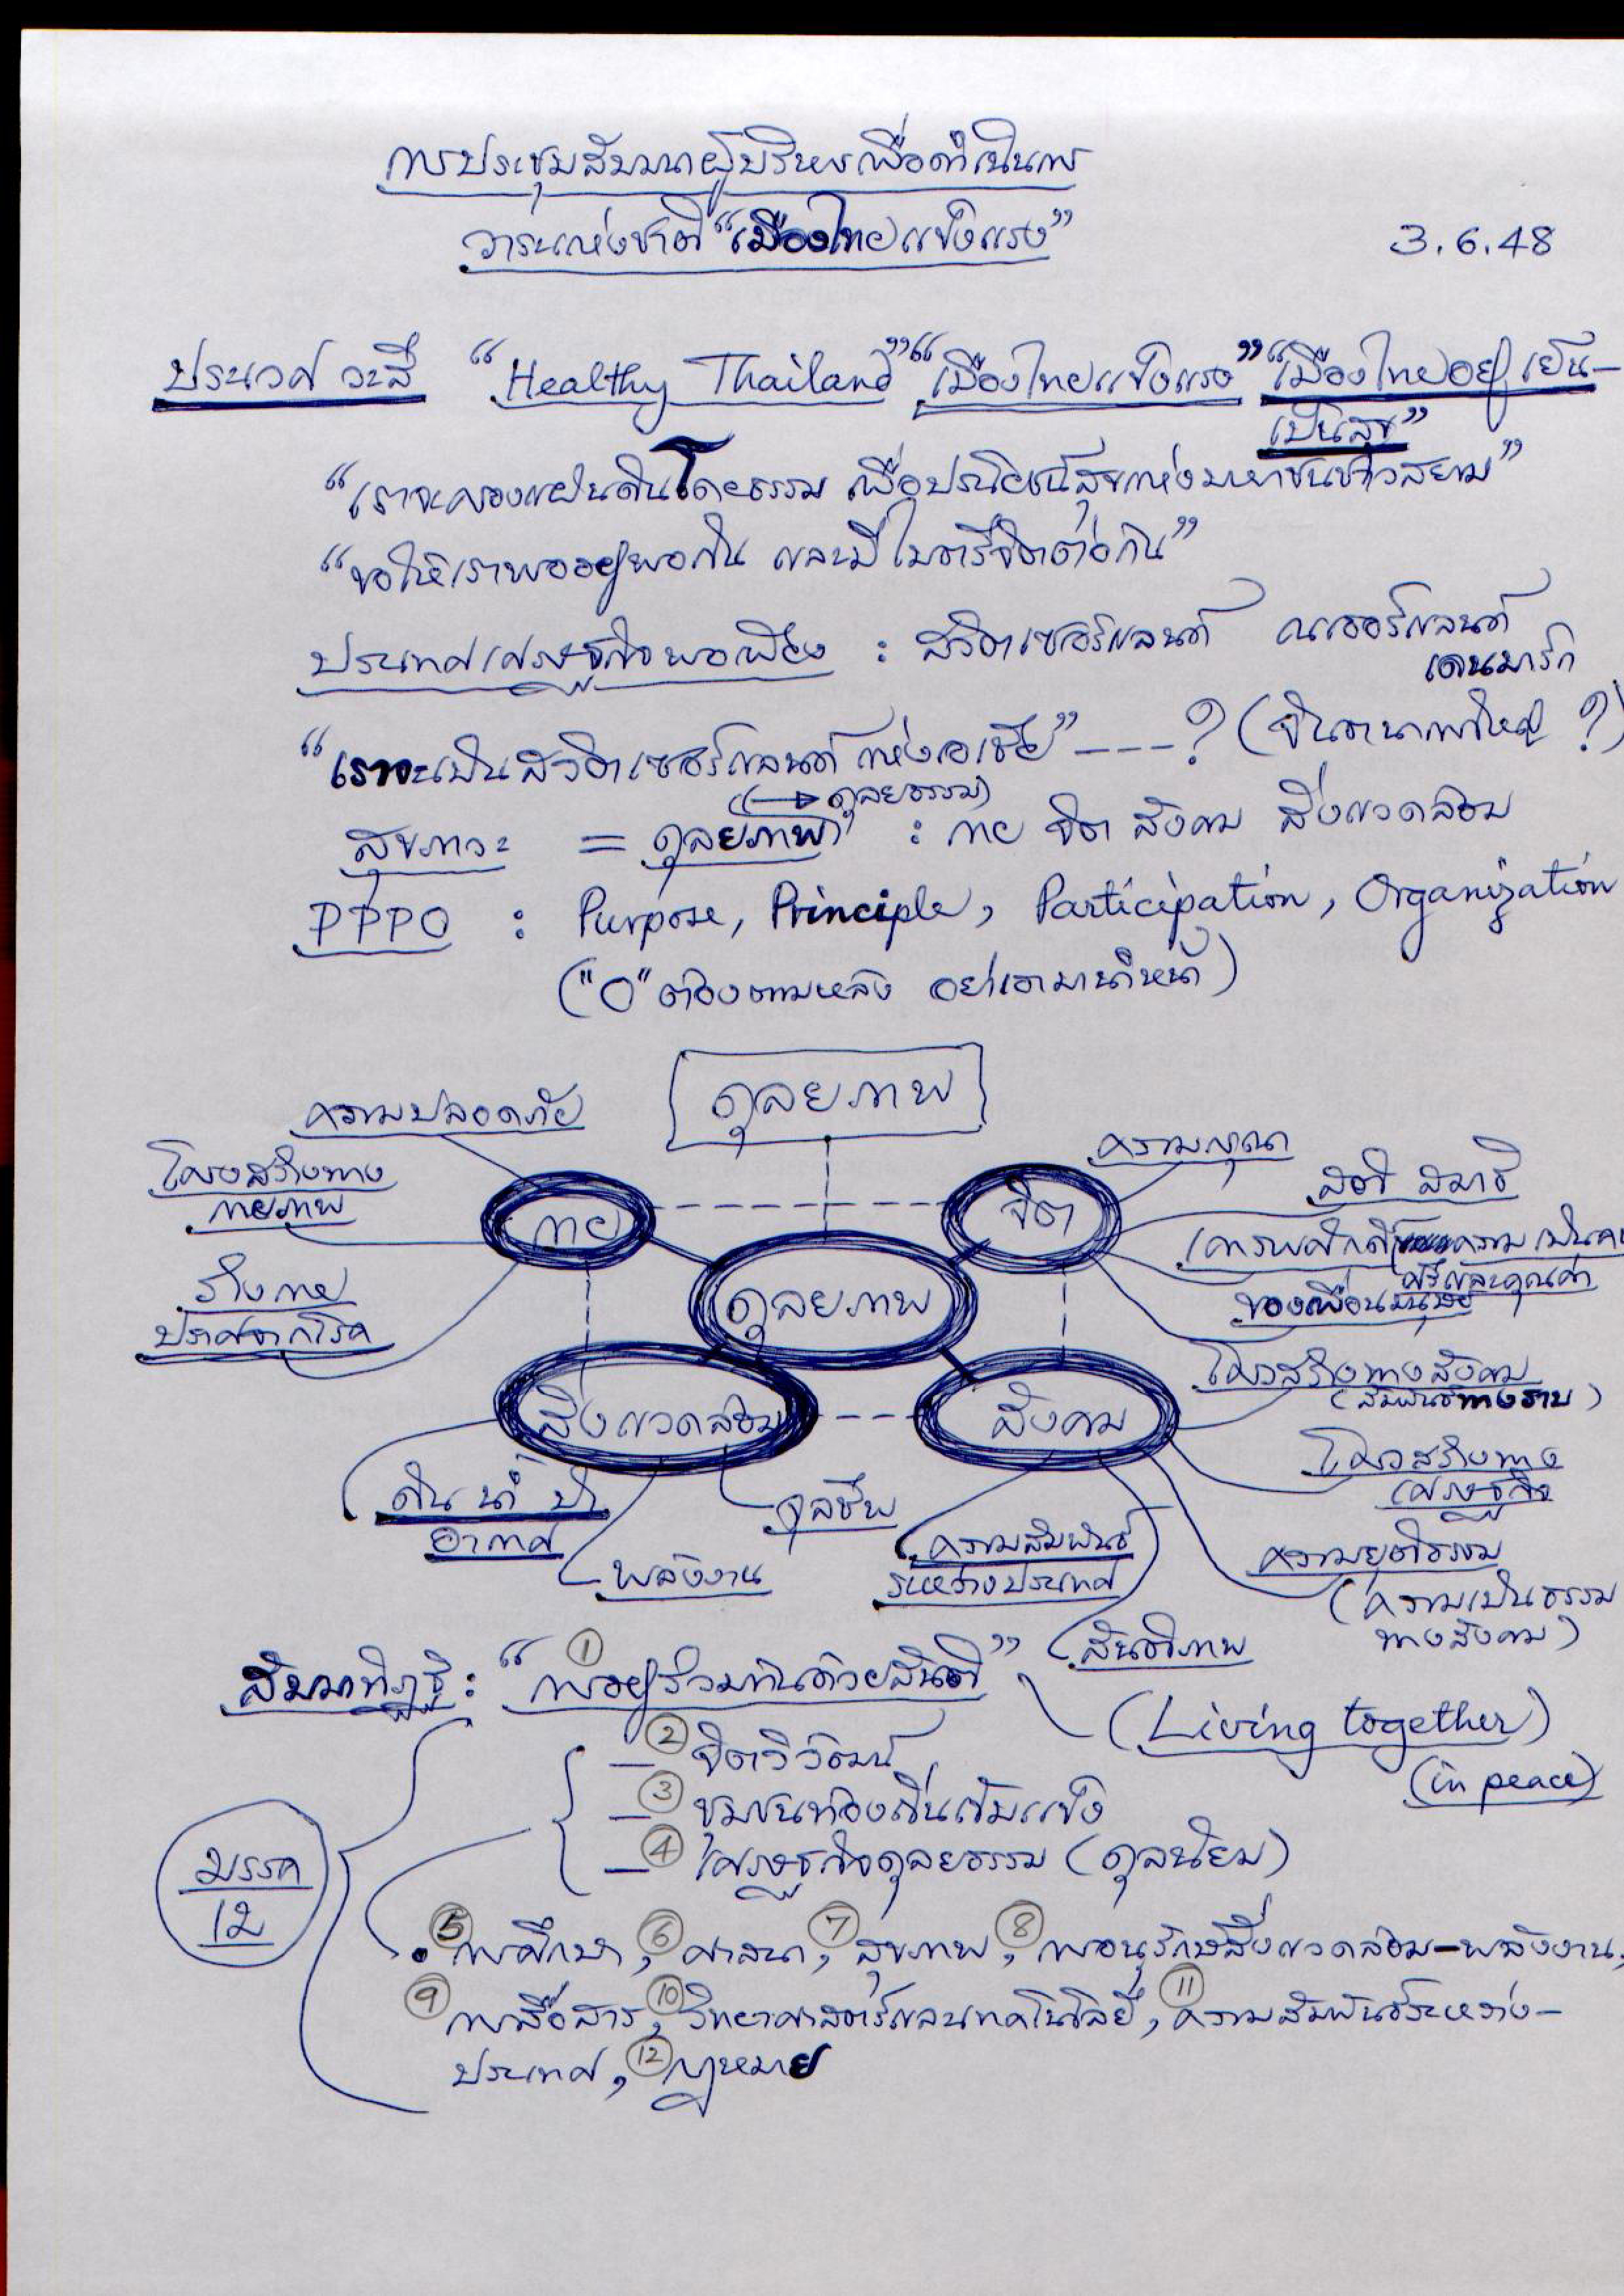 การประชุมสัมมนาผู้บริหารเพื่อดำเนินการ
วาระแห่งชาติ "เมืองไทยแข็งแรง"
3.6.48
ประเวศ วะสี "Healthy Thailand" "เมืองไทยแข็งแรง" "เมืองไทยอยู่เย็น-
เป็นสุข"
"เราจะครองแผ่นดินโดยธรรม เพื่อประโยชน์สุขแห่งมหาชนชาวสยาม"
"ขอให้เราพออยู่พอกิน และมีไมตรีจิตต่อกัน"
ประเทศเศรษฐกิจพอเพียง : สวิตเซอร์แลนด์ เนเธอร์แลนด์
เดนมาร์ก
"เราจะเป็นสวิตเซอร์แลนด์แห่งเอเชีย" ---? (จินตนาการใหญ่ ?)
(→ ดุลยธรรม)
สุขภาวะ = ดุลยภาพ : กาย จิต สังคม สิ่งแวดล้อม
PPPO : Purpose, Principle, Participation, Organization
("O" ต้องตามหลัง อย่าเอามานำหน้า)
ดุลยภาพ
ความปลอดภัย
โครงสร้างทาง
กายภาพ
ร่างกาย
ปราศจากโรค
กาย
จิต
ความกรุณา
สติ สมาธิ
เคารพศักดิ์ ความเป็นคน
ศรีและคุณค่า
ของเพื่อนมนุษย์
ดุลยภาพ
สิ่งแวดล้อม
สังคม
โครงสร้างทางสังคม
(สัมพันธ์ทางราบ)
โครงสร้างทาง
เศรษฐกิจ
ดิน น้ำ ป่า
อากาศ
พลังงาน
จุลชีพ
ความสัมพันธ์
ระหว่างประเทศ
ความยุติธรรม
(ความเป็นธรรม
ทางสังคม)
สันติภาพ
สัมมาทิฏฐิ : "① การอยู่ร่วมกันด้วยสันติ"
(Living together)
(in peace)
— ② จิตวิวัฒน์
— ③ ชุมชนท้องถิ่นเข้มแข็ง
— ④ เศรษฐกิจดุลยธรรม (ดุลนิยม)
มรรค
12
• ⑤ การศึกษา, ⑥ ศาสนา, ⑦ สุขภาพ, ⑧ การอนุรักษ์สิ่งแวดล้อม-พลังงาน,
⑨ การสื่อสาร, ⑩ วิทยาศาสตร์และเทคโนโลยี, ⑪ ความสัมพันธ์ระหว่าง-
ประเทศ, ⑫ กฎหมาย